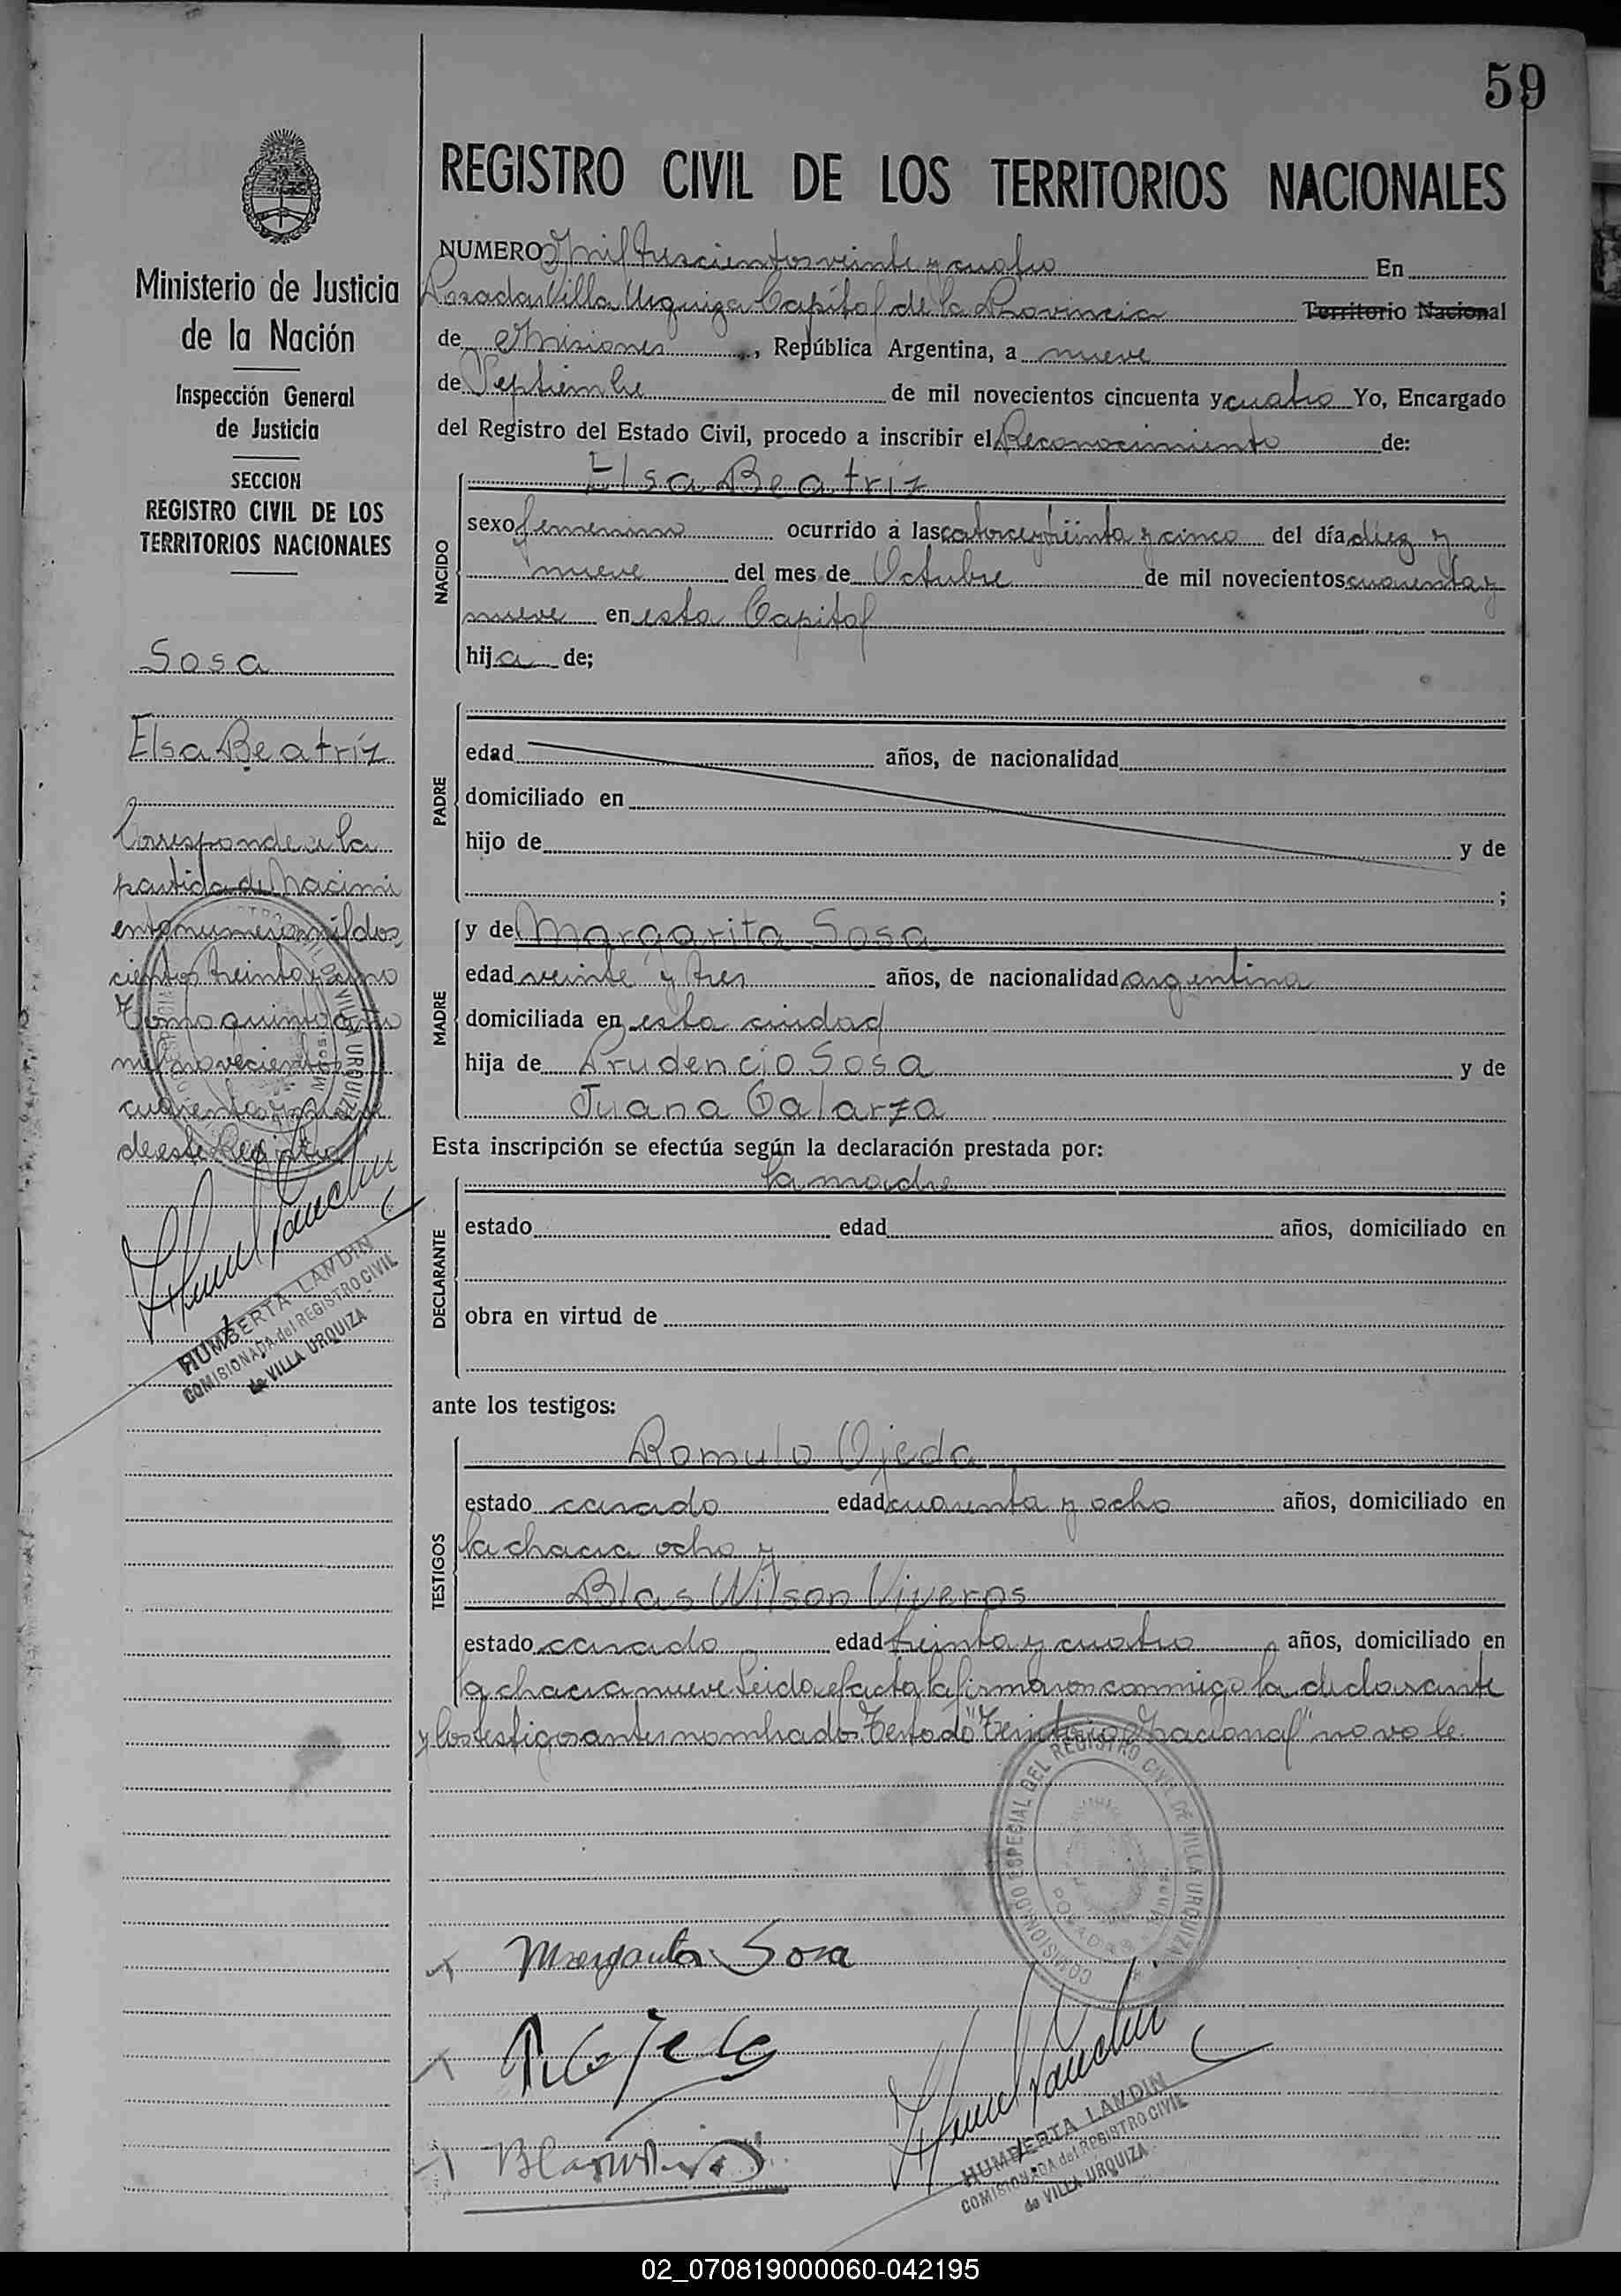 59
REGISTRO CIVIL DE LOS TERRITORIOS NACIONALES
Ministerio de Justicia
de la Nación
Inspección General
de Justicia
SECCION
REGISTRO CIVIL DE LOS
TERRITORIOS NACIONALES
Sosa
Elsa Beatríz
Corresponde a la
partida de Nacimi
ento numero mil dos
cientos treinta y cinco
Tomo quinto año
mil novecientos
cuarenta y nueve
de este Registro
HUMBERTA LANDIN
COMISIONADA del REGISTRO CIVIL
de VILLA URQUIZA
NUMERO Mil trescientos veinte y cuatro En
Posadas Villa Urquiza Capital de la Provincia Territorio Nacional
de Misiones, República Argentina, a nueve
de Septiembre de mil novecientos cincuenta y cuatro Yo, Encargado
del Registro del Estado Civil, procedo a inscribir el Reconocimiento de:
NACIDO
Elsa Beatríz
sexo femenino ocurrido á las catorce y treinta y cinco del día diez y
nueve del mes de Octubre de mil novecientos cuarenta y
nueve en esta Capital
hija de;
PADRE
edad años, de nacionalidad
domiciliado en
hijo de y de
;
MADRE
y de Margarita Sosa
edad veinte y tres años, de nacionalidad argentina
domiciliada en esta ciudad
hija de Prudencio Sosa y de
Juana Galarza
Esta inscripción se efectúa según la declaración prestada por:
DECLARANTE
la madre
estado edad años, domiciliado en
obra en virtud de
ante los testigos:
TESTIGOS
Romulo Ojeda
estado casado edad cuarenta y ocho años, domiciliado en
la chacra ocho y
Blas Wilson Viveros
estado casado edad treinta y cuatro años, domiciliado en
la chacra nueve Leida el acta la firmaron conmigo la declarante
y los testigos antes nombrados. Testado "Territorio Nacional" no vale.
COMISIONADO ESPECIAL DEL REGISTRO CIVIL DE VILLA URQUIZA
POSADAS
Margarita Sosa
HUMBERTA LANDIN
COMISIONADA del REGISTRO CIVIL
de VILLA URQUIZA
02_070819000060-042195